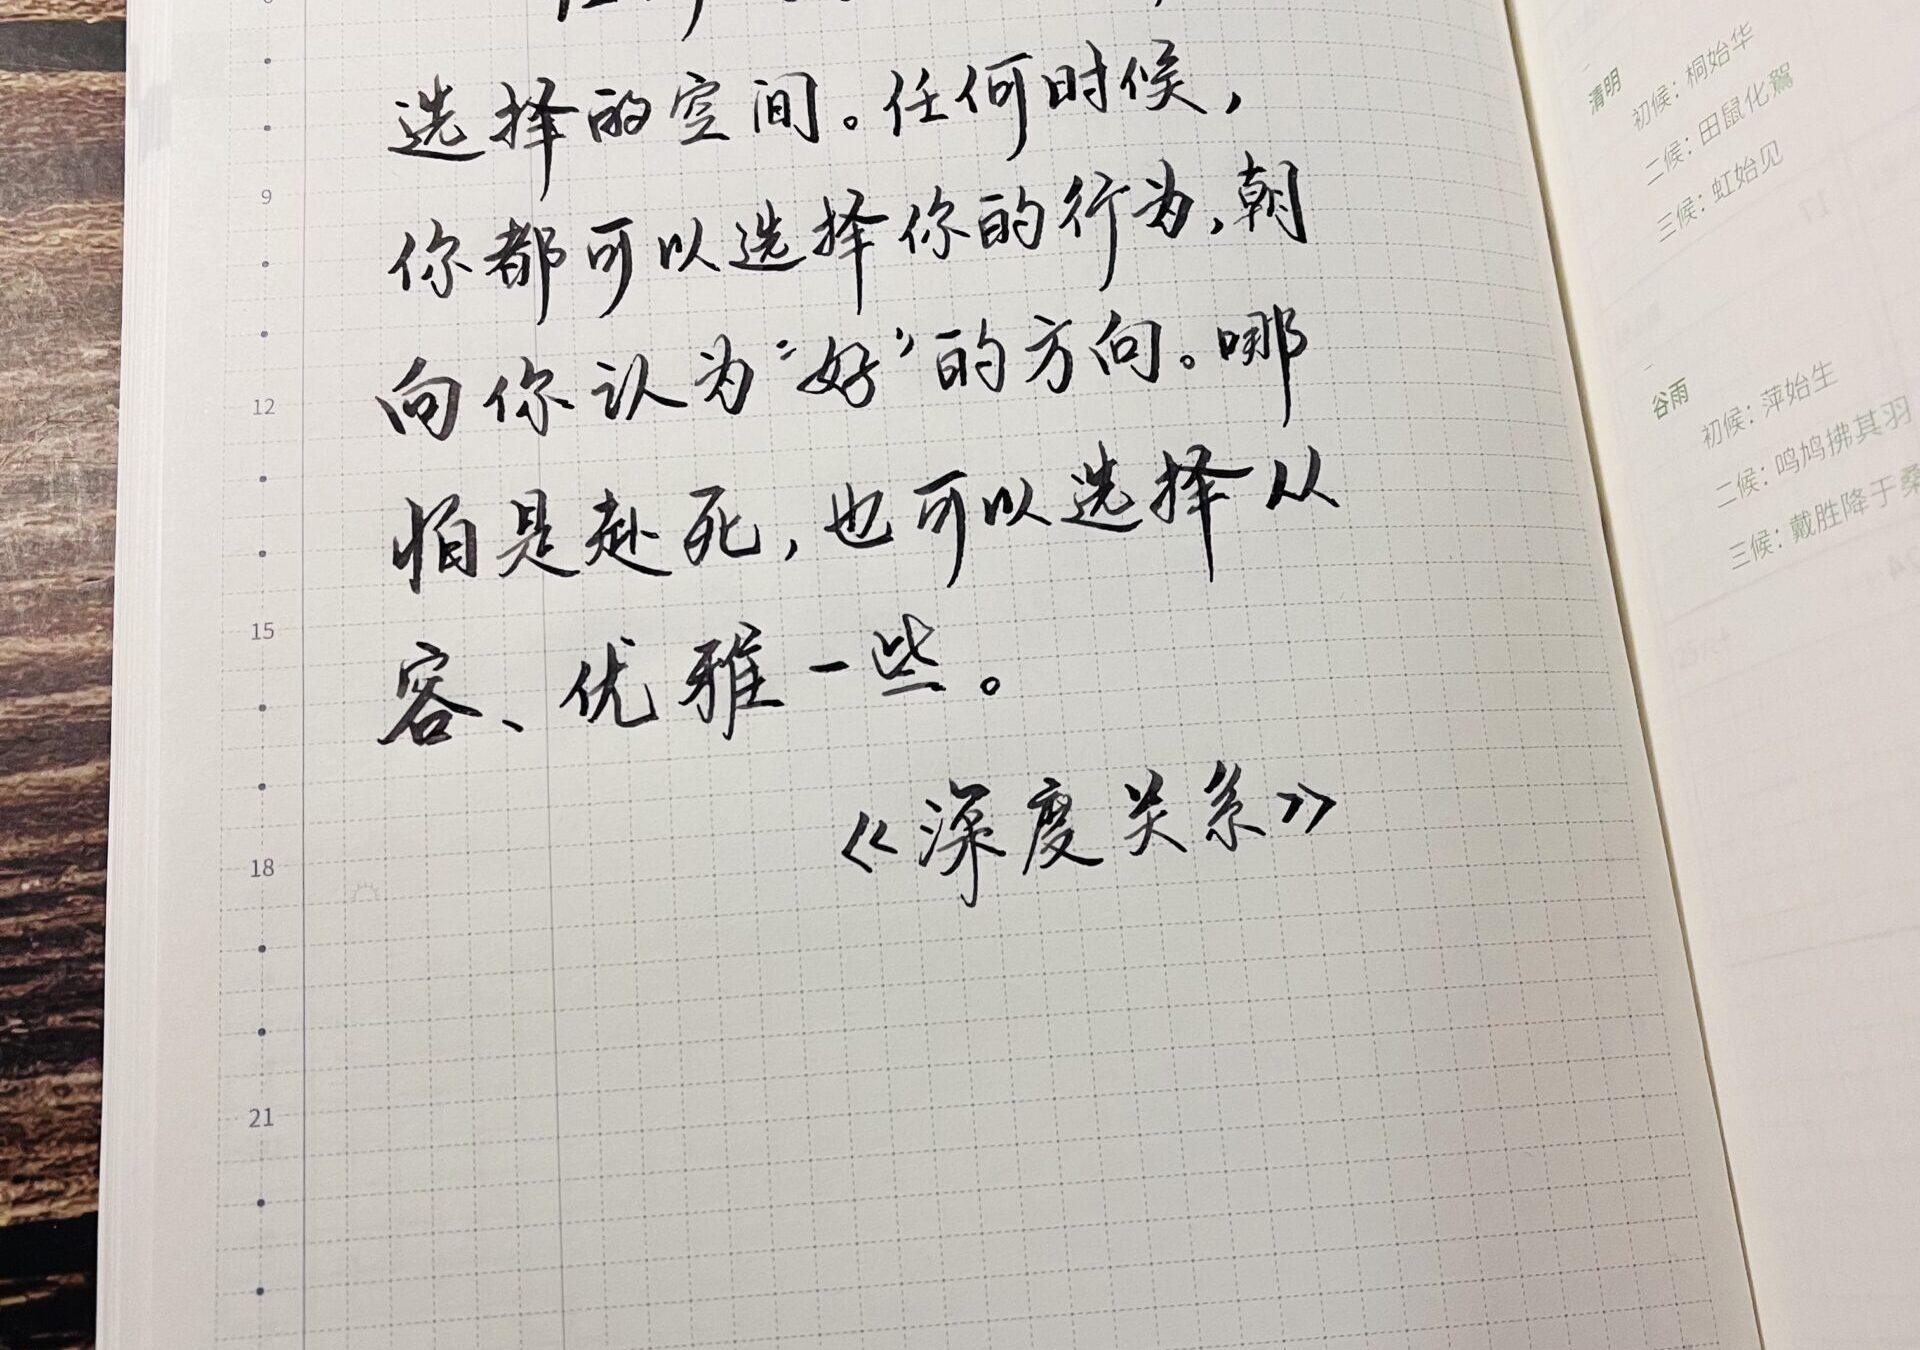 选择的空间。任何时候，
你都可以选择你的行为，朝
向你认为“好”的方向。哪
怕是赴死，也可以选择从
容、优雅一些。
《深度关系》
9
12
15
18
21
清明
初候：桐始华
二候：田鼠化鴽
三候：虹始见
谷雨
初候：萍始生
二候：鸣鸠拂其羽
三候：戴胜降于桑